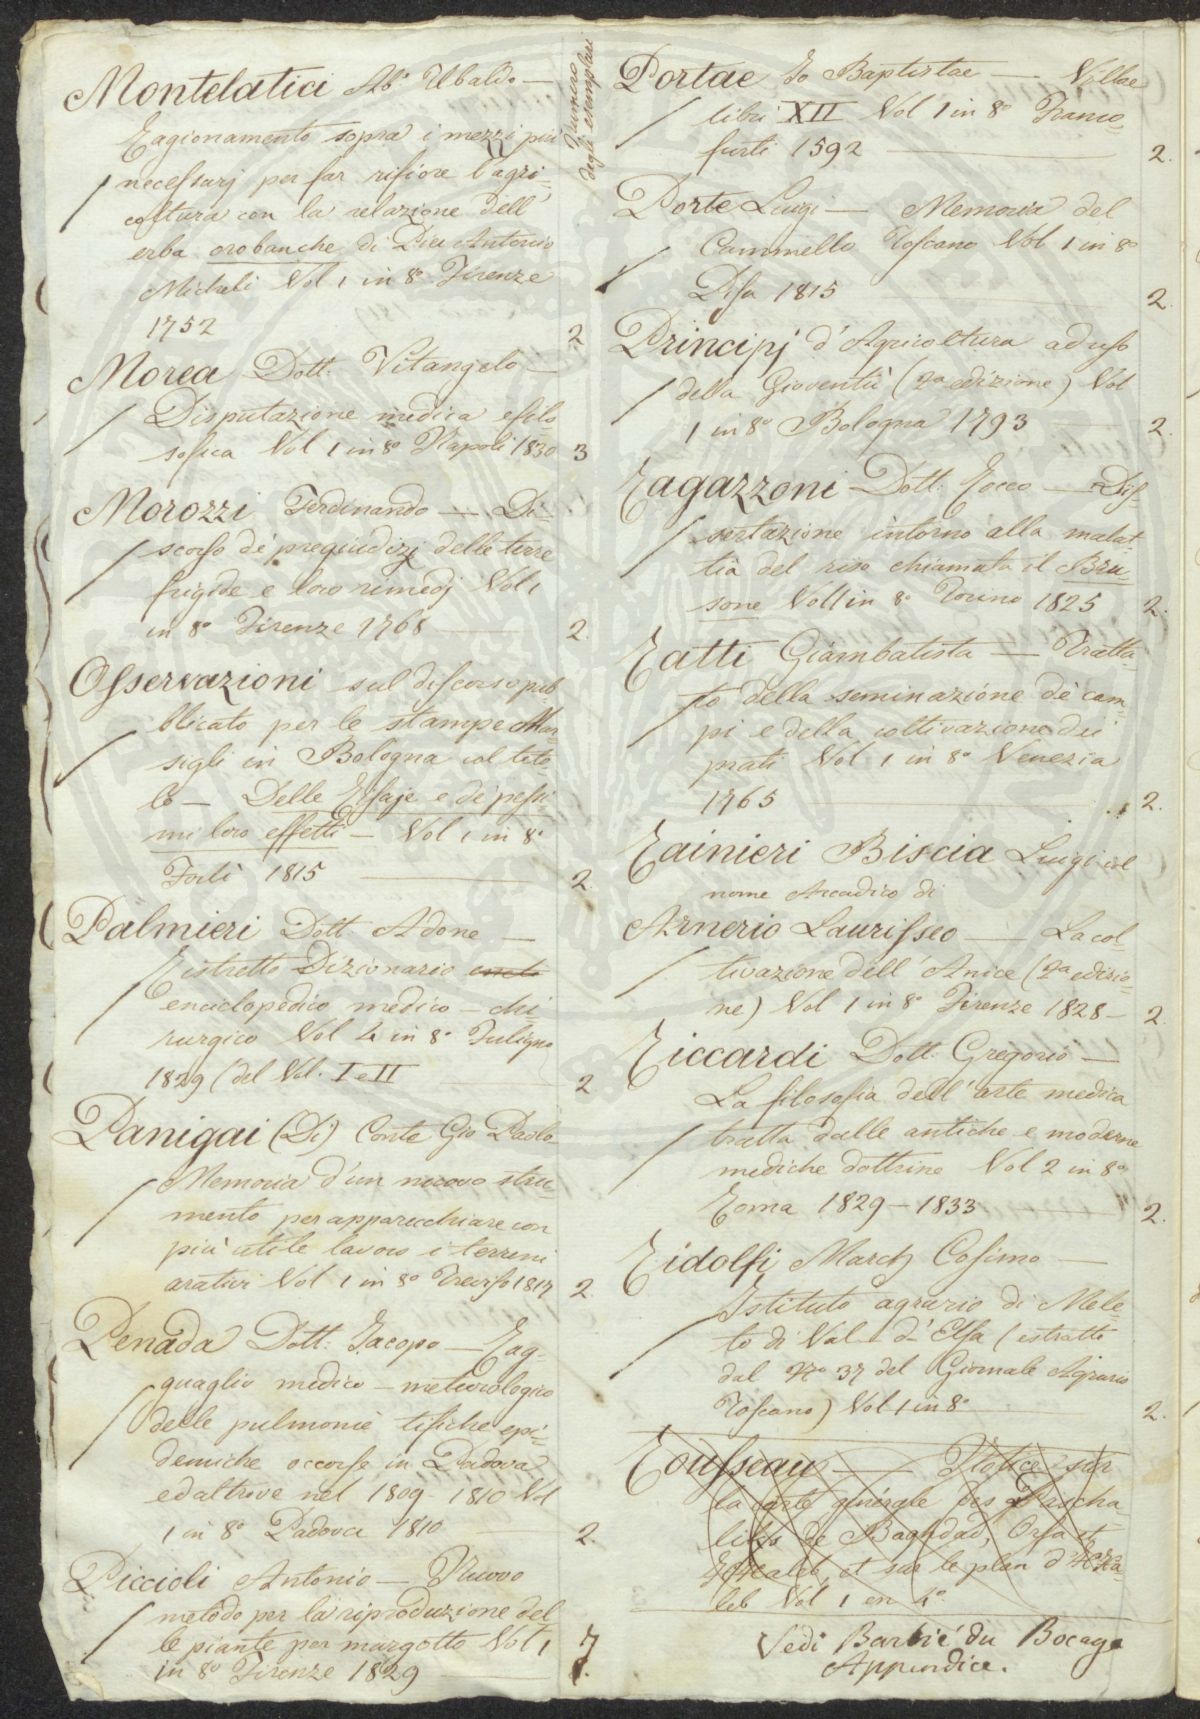 Numero
degli esemplari
Montelatici Ab.e Ubaldo —
Ragionamento sopra i mezzi più
necessarj per far rifiore l'agri-
coltura con la relazione dell'
erba orobanche di Pier Antonio
Micheli Vol 1 in 8° Firenze
1752 2
Morea Dott. Vitangelo —
Disputazione medica e filo
sofica Vol 1 in 8° Napoli 1830 3
Morozzi Ferdinando — Di-
scorso de' pregiudizj delle terre
frigide e loro rimedj Vol 1
in 8° Firenze 1768 — 2.
Osservazioni sul discorso pub
blicato per le stampe Mar
sigli in Bologna col tito-
lo — Delle Risaje e de' pessi-
mi loro effetti — Vol 1 in 8°
Forlì 1815 — 2.
Palmieri Dott. Adone —
Ristretto Dizionario
enciclopedico medico-chi
rurgico Vol 4 in 8° Fuligno
1829 (del Vol. I e II — 2
Panigai (Di) Conte Gio Paolo
Memoria d'un nuovo stru-
mento per apparecchiare con
più utile lavoro i terreni
arativi Vol 1 in 8° Treviso 1817 2.
Penada Dott. Jacopo — Rag-
guaglio medico-meteorologico
delle pulmonie tifiche epi-
demiche occorse in Padova
ed altrove nel 1809-1810 Vol
1 in 8° Padova 1810 — 2.
Piccioli Antonio — Nuovo
metodo per la riproduzione del
le piante per margotto Vol 1 7
in 8° Firenze 1829 —
Portae Io Baptistae — Villae
libri XII Vol 1 in 8° Franco-
furti 1592 — 2.
Porte Luigi — Memoria del
Cammello Toscano Vol 1 in 8°
Pisa 1815 — 2.
Principj d'Agricoltura ad uso
della Gioventù (2a edizione) Vol
1 in 8° Bologna 1793 — 2.
Ragazzoni Dott. Rocco — Dis-
sertazione intorno alla malat-
tia del riso chiamata il Bru-
sone Vol 1 in 8° Torino 1825 2.
Ratti Giambatista — Tratta-
to della seminazione de' cam-
pi e della coltivazione dei
prati Vol 1 in 8° Venezia
1765 2.
Rainieri Biscia Luigi col
nome Arcadico di
Arnerio Laurisseo — La col-
tivazione dell'Anice (2a edizio-
ne) Vol 1 in 8° Firenze 1828 — 2.
Riccardi Dott. Gregorio —
La filosofia dell'arte medica
tratta dalle antiche e moderne
mediche dottrine Vol 2 in 8°
Roma 1829-1833 — 2.
Ridolfi March Cosimo —
Istituto agrario di Mele-
to di Val d'Elsa (estratto
dal N° 37 del Giornale Agrario
Toscano) Vol 1 in 8° — 2.
Rousseau — Notice sur
la carte générale des Pascha-
liks de Baghdad, Orfa et
et sur le plan d'
leb Vol 1 en 4°
Vedi Barbié du Bocage
Appendice.